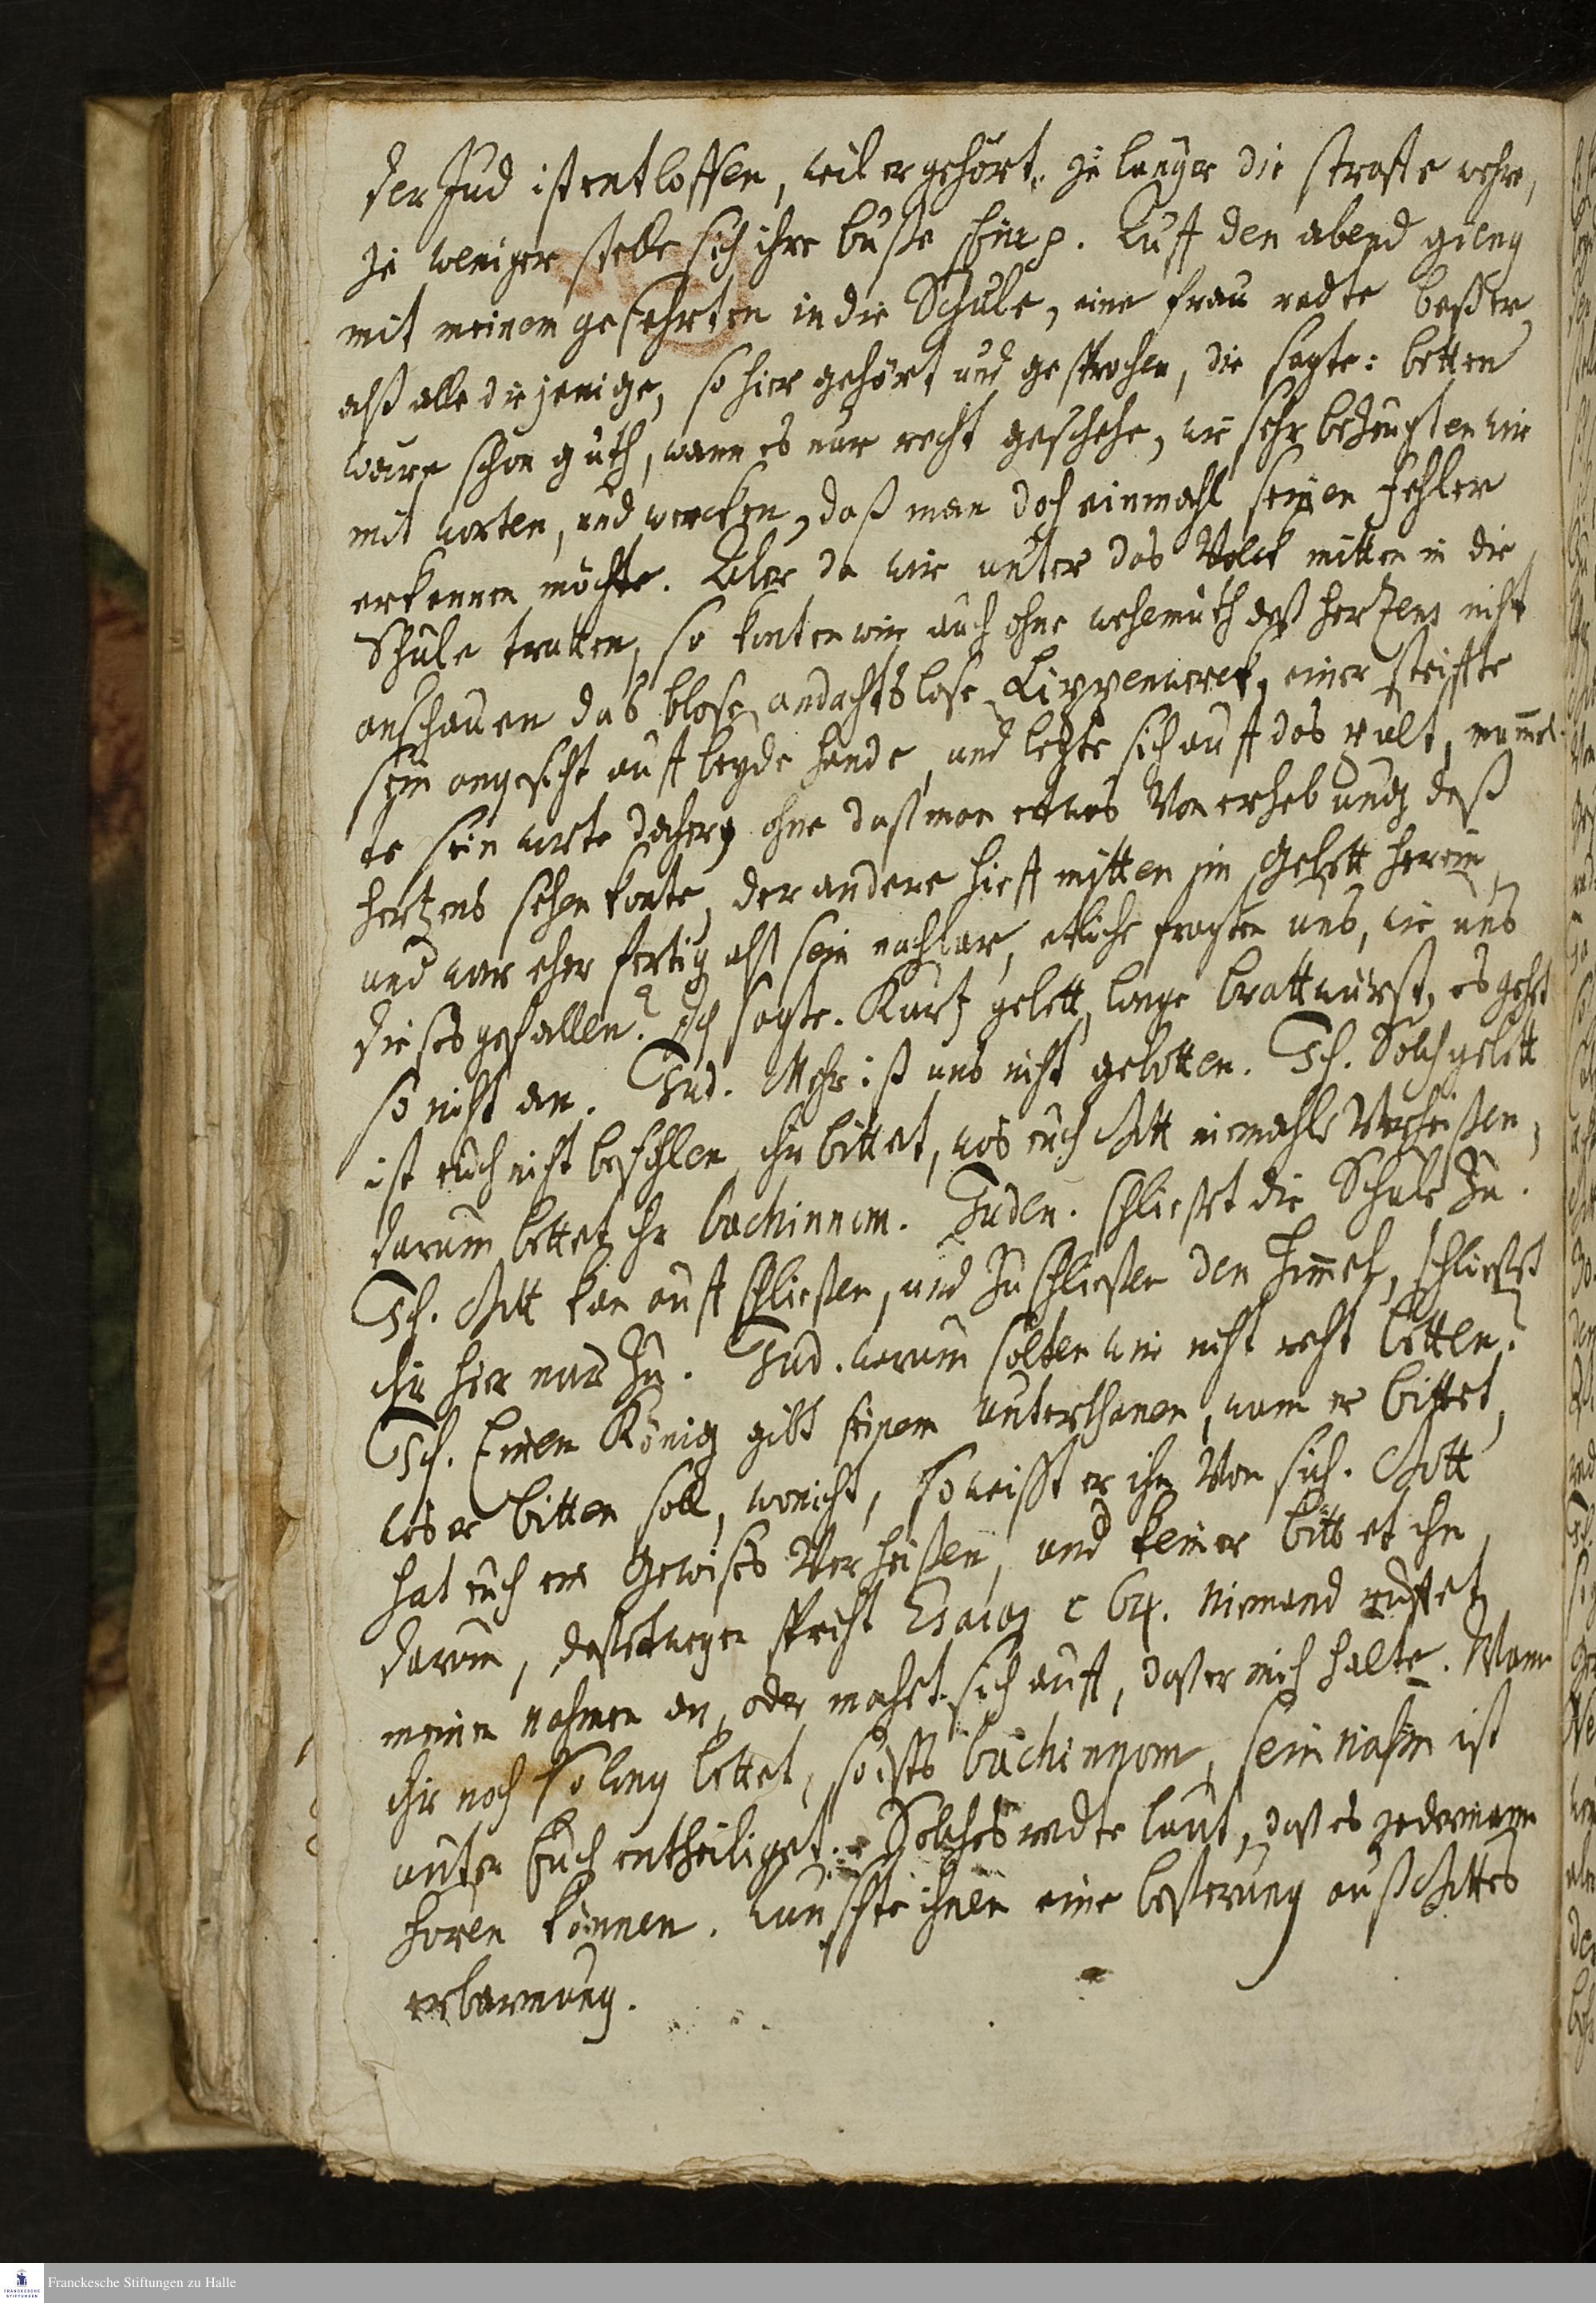 der Jud ist entloffen, weil er gehört, je langer die straffe wehre,
je weniger stelle sich ihre busse ein p. Auff den abend gieng
mit meinem gefehrten in die Schule, eine frau redte besser
alß alle diejenige, so hier gehört und gesprochen, die sagte: betten
ware schon guth, wann es nur recht geschehe, wir sehr bezeugten wir
mit worten, und wercken, daß man doch einmahl seinen fehler
erkennen möchte. Aber da wir unter das Volck mitten in die
Schule tratten, so konten wir auch ohne wehemuth deß hertzens nicht
anschauen das blose andachtslose Lippenwerck, einer steiffte
sein angesicht auff beyde hande, und legte sich auff das pult, mum̅el
te sein worte daher, ohne daß man etwas Von erhebung deß
hertzens sehen konte, der andere lieff mitten im Gebett herein
und war eher fertig alß sein nachbar, etliche fragten uns, wie uns
dieses gefallen? Ich sagte. Kurtz gebett, lange brattwürst, es gehet
so nicht an. Jud. Mehr ist uns nicht gebotten. Ich. Solch gebett
ist euch nicht befohlen, ihr bittet, was euch Gott niemahls Verheißen,
darum bettet ihr bachinnom. Juden. schließet die Schule zu.
Ich. Gott kan auff schließen, und zu schließen den him̅el, schließet
ihr hier nur zu. Jud. warum solten wir nicht recht betten?
Ich. Einem König gibt seinem unterthanen, wann er bittet,
was er bitten soll, wo nicht, so weißt er ihn Von sich. Gott
hat euch ein Gewises Verheißen, und keiner bittet ihn
darum, deßetwegen spricht Esaias c 64. niemand ruffet
meinen nahmen an, oder machet sich auff, daß er mich halte. Wann
ihr noch so lang bettet, so ists bachinnom, sein nahm ist
unter Euch entheiliget. Solches redte laut, daß es jederman
horen können. wunschte ihnen eine besserung auß Gottes
erbarmung.
Franckesche Stiftungen zu Halle